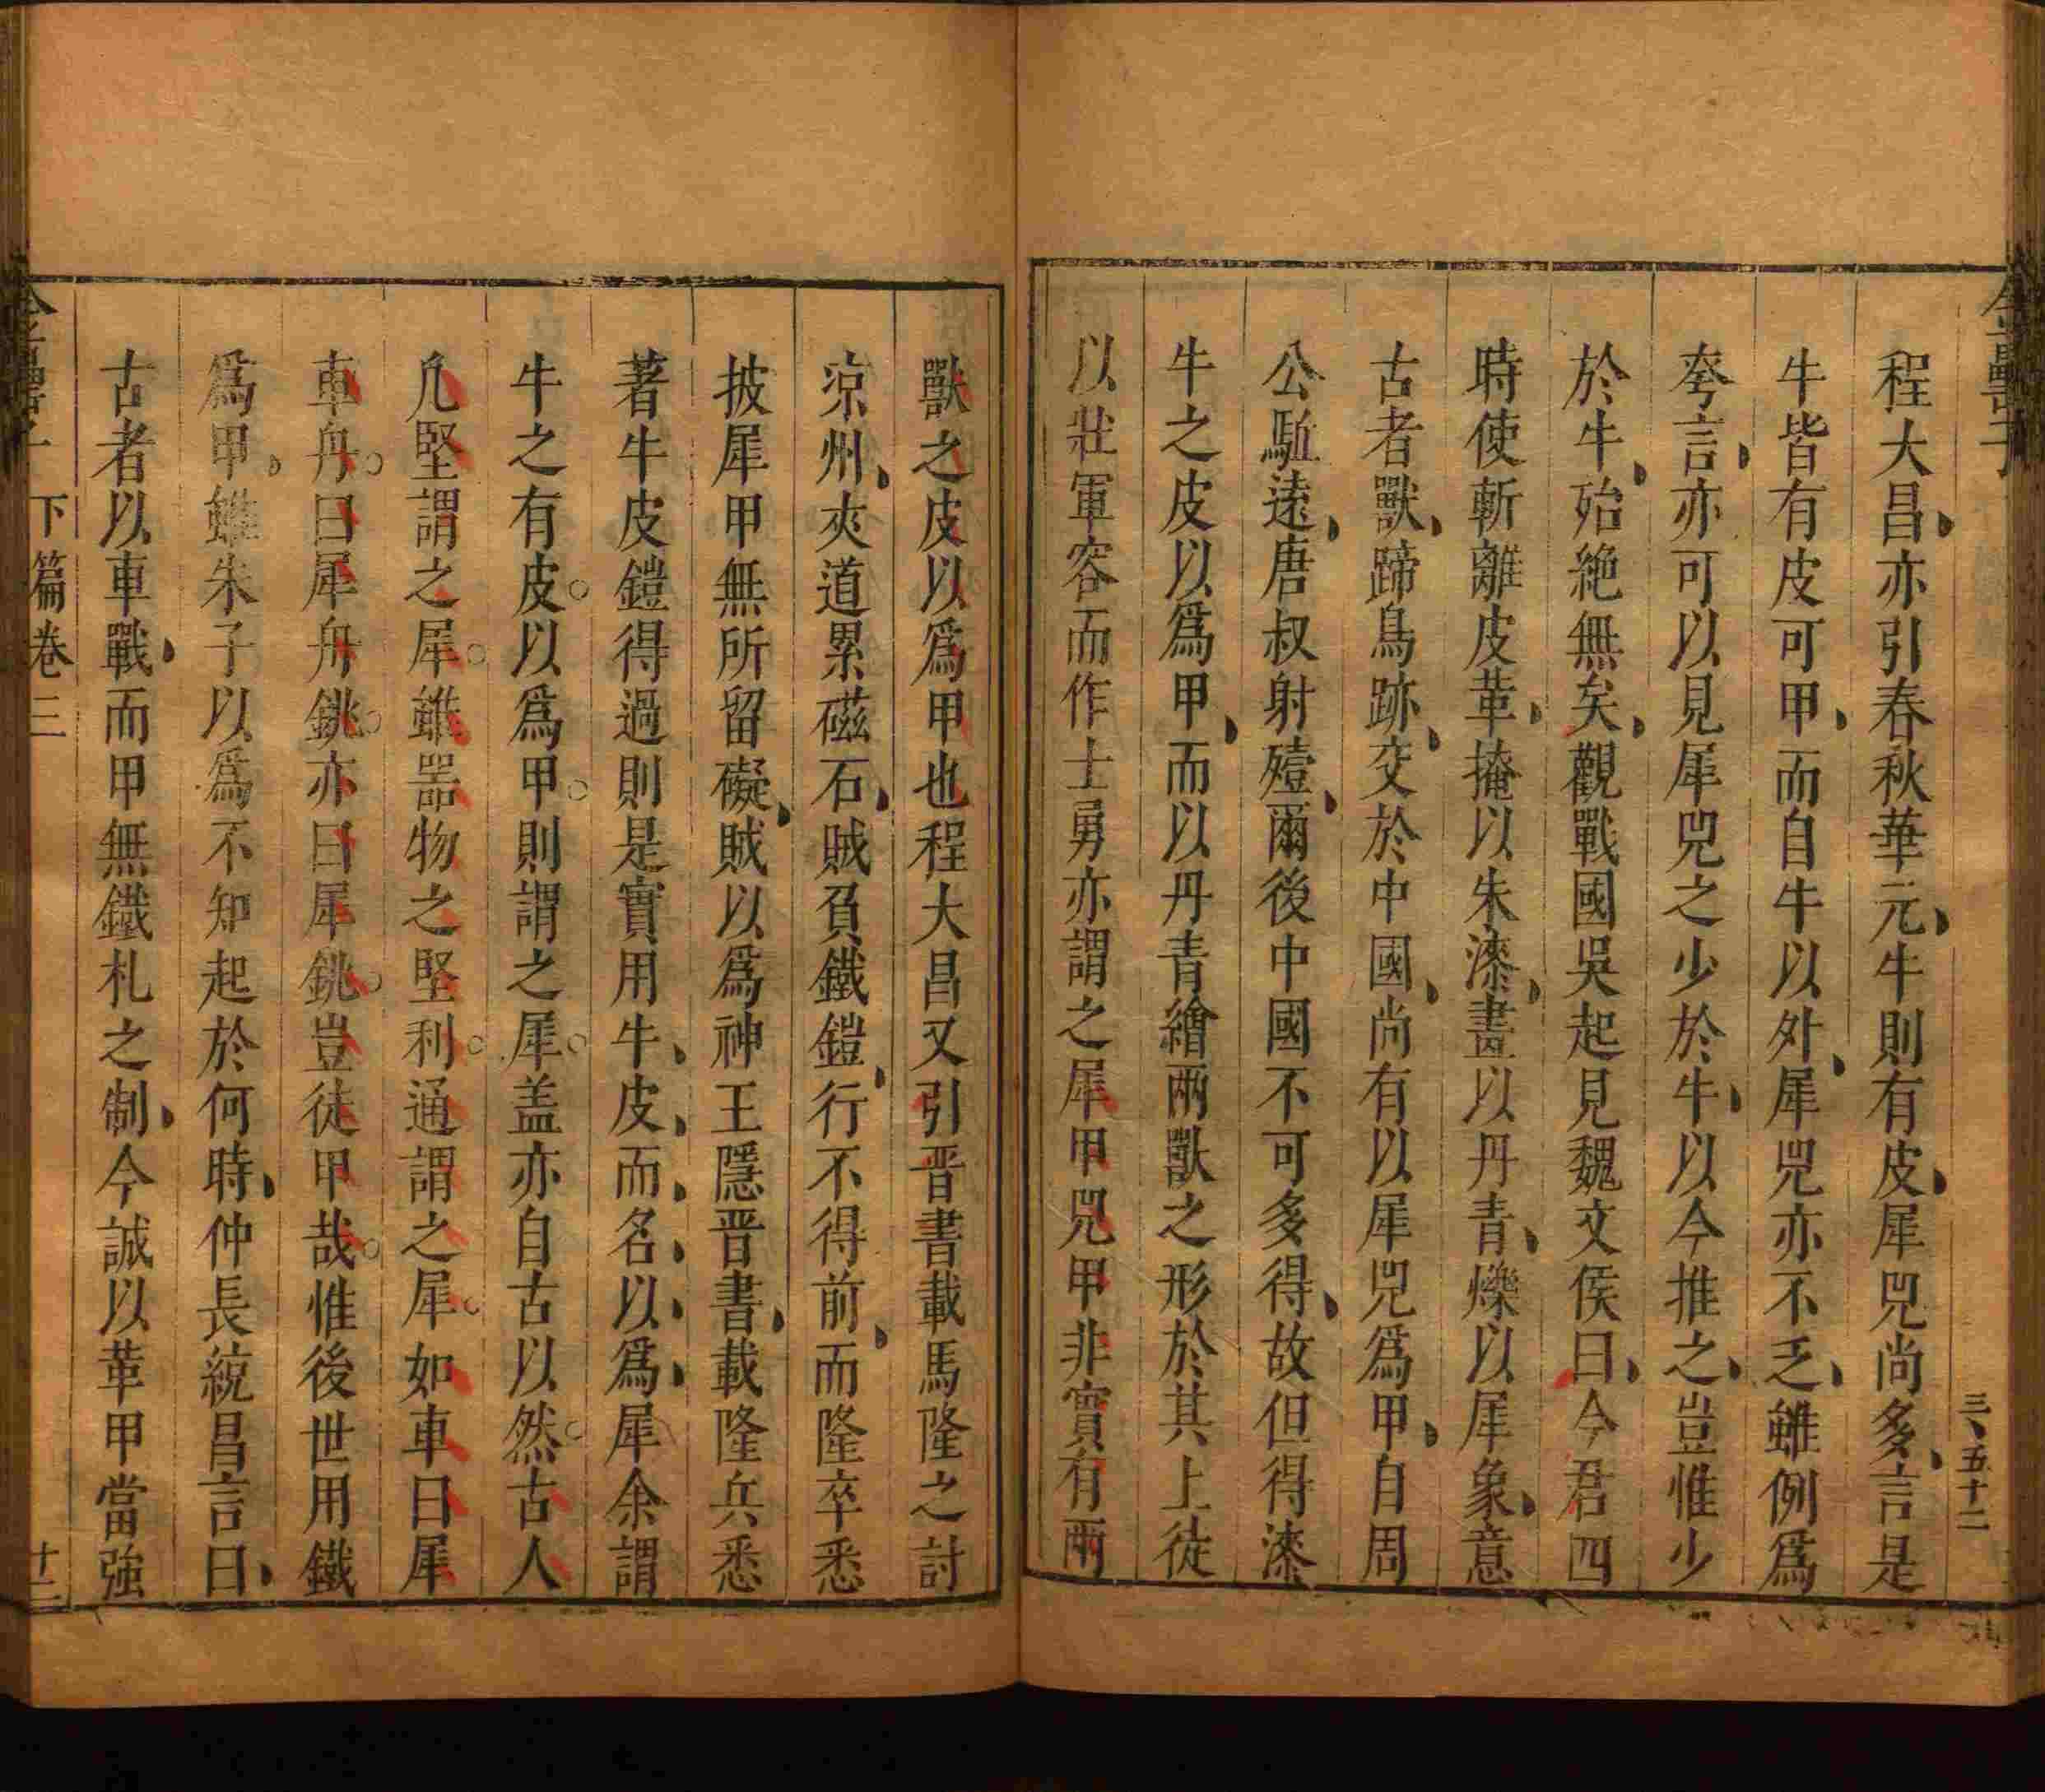 三五十二
程大昌亦引春秋華元牛則有皮犀兕尚多言是
牛皆有皮可甲而自牛以外犀兕亦不乏雖例爲
夸言亦可以見犀兕之少於牛以今推之豈惟少
於牛殆絶無矣觀戰國吳起見魏文侯曰今君四
時使斬離皮革掩以朱漆畫以丹青爍以犀象意
古者獸蹄鳥跡交於中國尚有以犀兕爲甲自周
公驅遠唐叔射殪爾後中國不可多得故但得漆
牛之皮以爲甲而以丹青繪兩獸之形於其上徒
以壯軍容而作士勇亦謂之犀甲兕甲非實有兩
獸之皮以爲甲也程大昌又引晋書載馬隆之討
凉州夾道累磁石賊負鐵鎧行不得前而隆卒悉
披犀甲無所留礙賊以爲神王隱晋書載隆兵悉
著牛皮鎧得過則是實用牛皮而名以爲犀余謂
牛之有皮以爲甲則謂之犀盖亦自古以然古人
凡堅謂之犀雖噐物之堅利通謂之犀如車曰犀
車舟曰犀舟銚亦曰犀銚豈徒甲哉惟後世用鐵
爲甲雖朱子以爲不知起於何時仲長統昌言曰
古者以車戰而甲無鐵札之制今誠以革甲當強
下篇卷三
十二